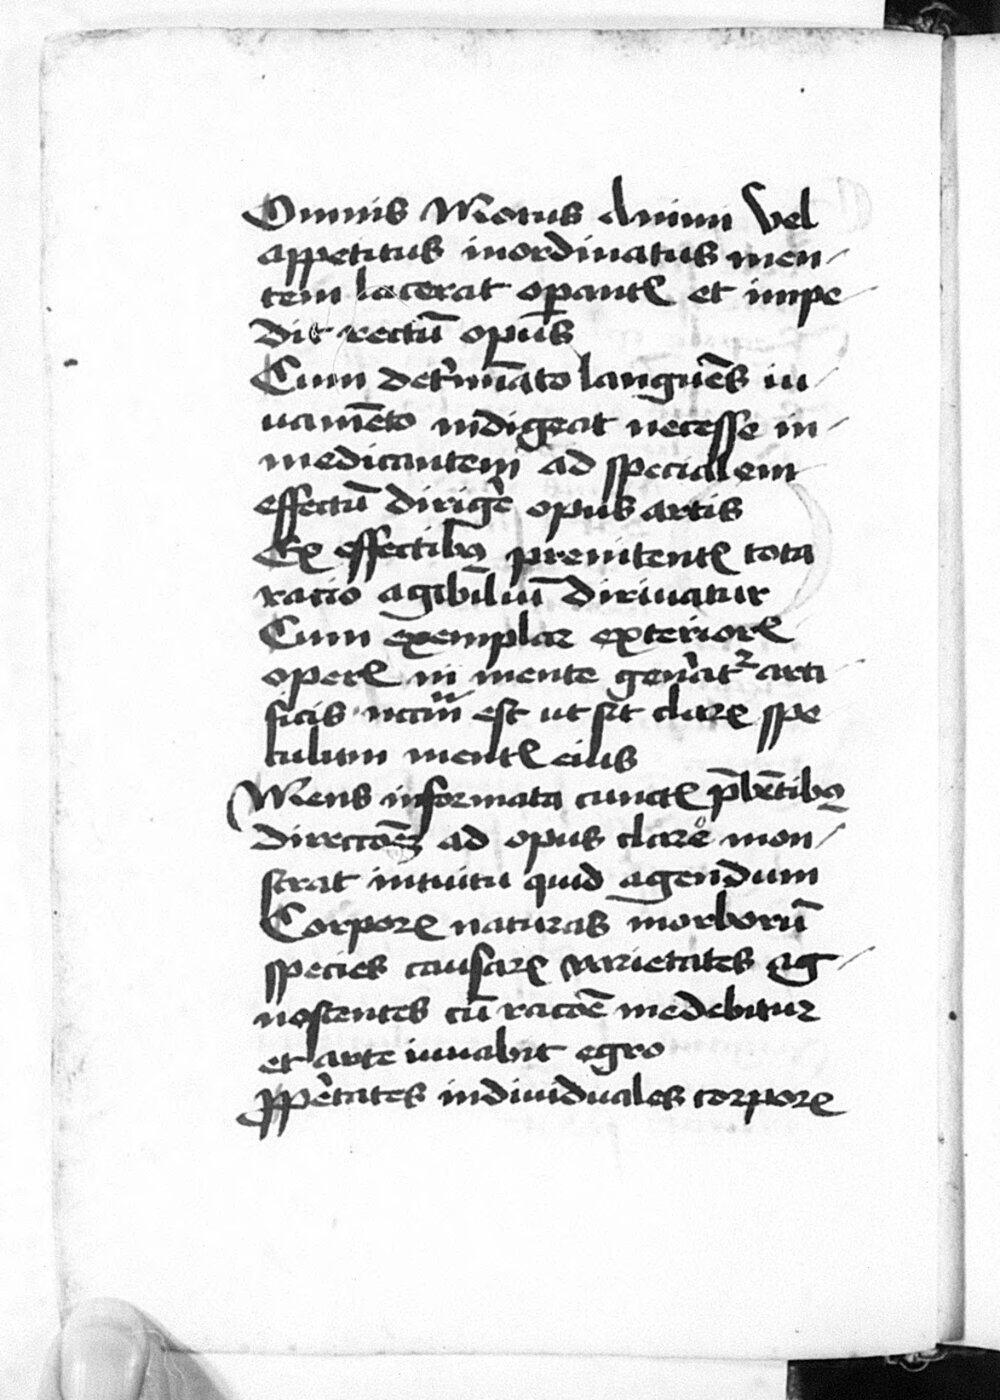 Omnis Motus Animi Vel
appetitus inordinatus men
tem lacerat operantꝭ et impe
dit rectū opus
Cum det'mīato languēs iu
uamēto indigeat necesse in
medicantem ad specialem
effectū dirig'e opus artis
Ex effectibꝰ premitentꝭ tota
racio agibiliū diriuatur
Cum exemplar exteriorꝭ
operꝭ in mente gen'atᷣ arti
ficis nccm̄ est ut sit clarꝭ spe
culum mentꝭ eius
Mens informata cunctꝭ p̄bētibꝰ
directōeꝫ ad opus clare mon
strat intuitu quid agendum
Corporꝭ naturas morborū
species causarꝭ varietates ag
noscentes cū racōe medebitur
et arte iuuabit egro
ꝓp'etates indiuiduales corporꝭ